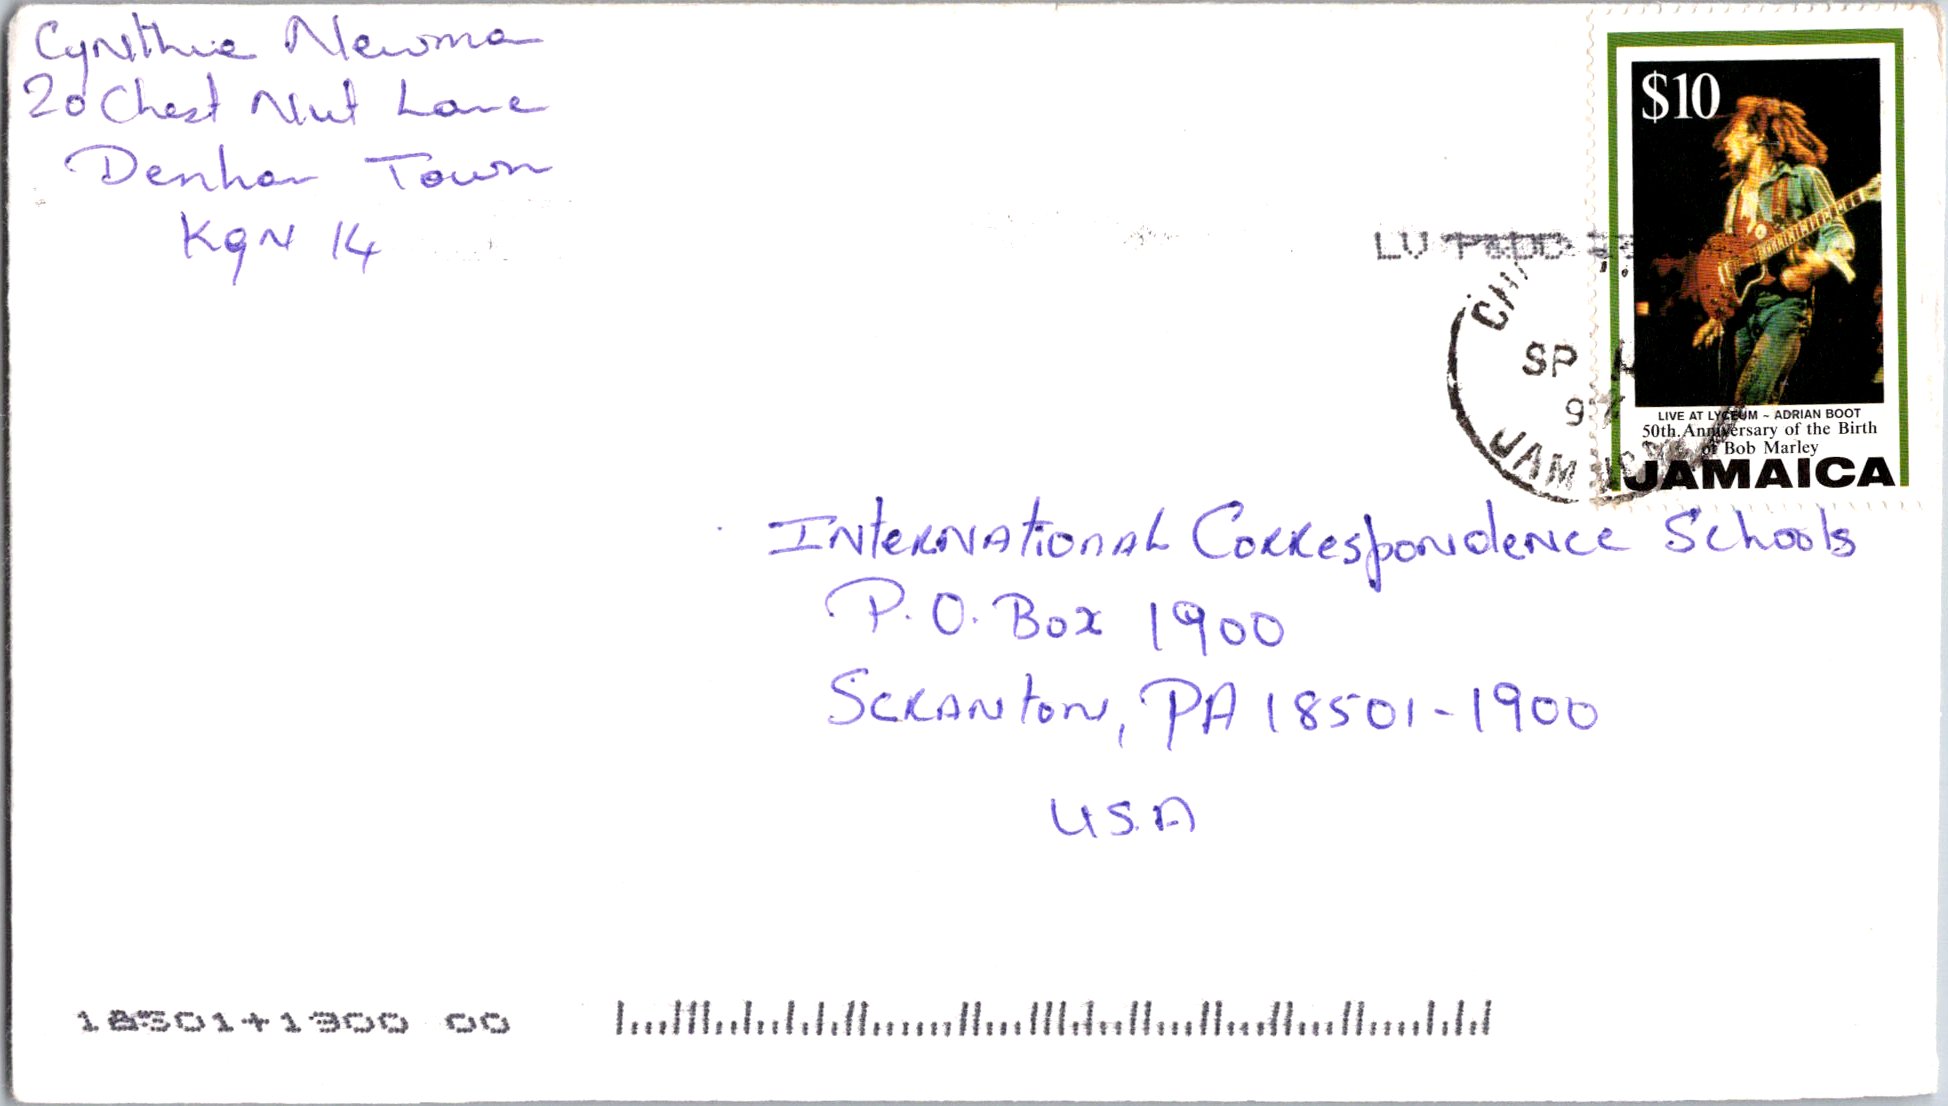 Cynthia Newma
20 Chest Nut Lane
Denhan Town
KGN 14
$10
LIVE AT LYCEUM ~ ADRIAN BOOT
50th. Anniversary of the Birth
of Bob Marley
JAMAICA
LU
SP
JAMAICA
International Correspondence Schools
P.O. Box 1900
Scranton, PA 18501-1900
USA
18501+1900 00